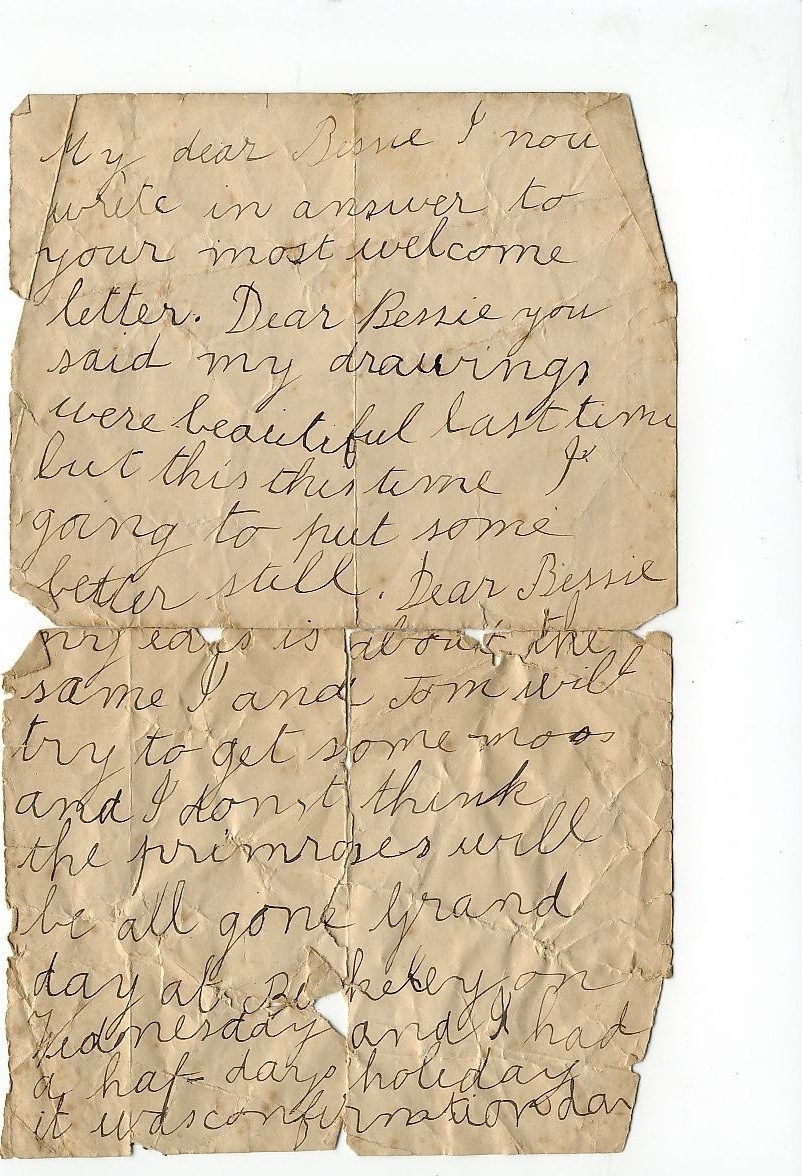 My dear Bessie I now
write in answer to
your most welcome
letter. Dear Bessie you
said my drawings
were beautiful last time
but this this time I
going to put some
better still. Dear Bessie
my ears is about the
same I and Tom will
try to get some moss
and I donst think
the primroses will
be all gone Grand
day at Berkeley on
Wednesday and I had
a haf days holiday
it was confirmations day